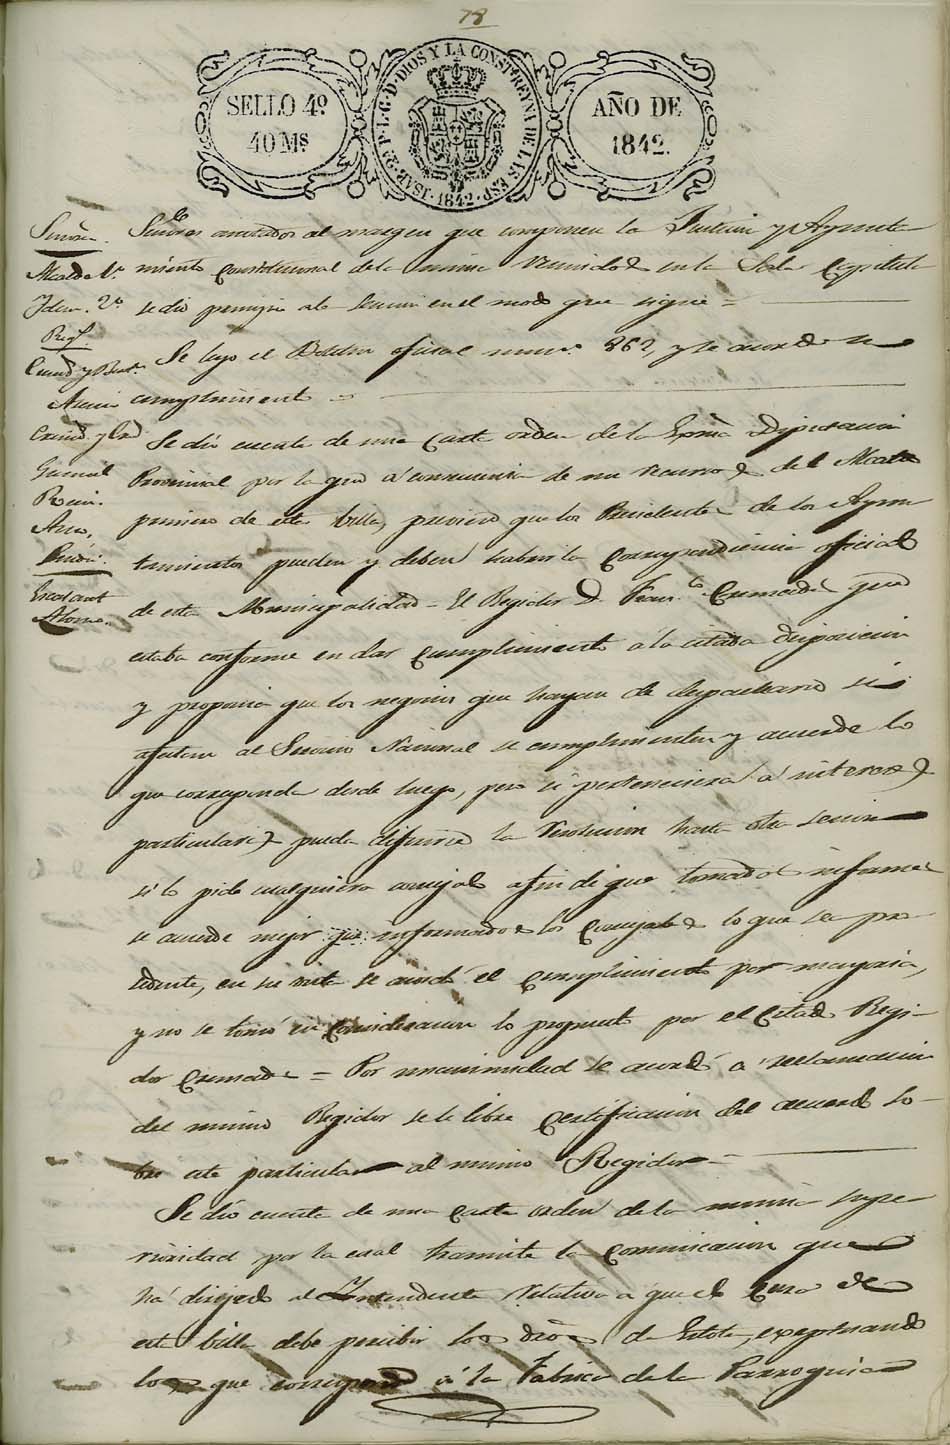 78
SELLO 4º
40 Ms
ISAB. 2ª P. L. G. D. DIOS Y LA CONST. REYNA DE LAS ESP. 1842
AÑO DE
1842.
Señores anotados al margen que componen la Justicia y Ayunta-
miento Constitucional de la misma reunidos en la Sala Capitular
se dio principio a la sesion en el modo que sigue =
Se leyó el Boletin oficial num.º 862, y se acordó su
cumplimiento =
Se dió cuenta de una carta orden de la Exma Diputacion
Provincial por la que á consecuencia de un recurso del Alcalde
primero de esta billa, previene que los Presidentes de los Ayun
tamientos pueden y deben habrir la Correspondencia oficial
de esta Municipalidad = El Regidor D. Fran.co que
estaba conforme en dar Cumplimiento á la citada disposicion
y proponia que los negocios que hayan de despacharse si
afectan al Servicio Nacional se cumplimenten y acuerde lo
que corresponda desde luego, pero si pertenecieren á intereses
particulares pueda diferirse la resolucion hasta otra sesion
si lo pide cualquiera concejal a fin de que tomados informes
se acuerde mejor informados los Concejales lo que sea pru
dente, en su vista se acordó el Cumplimiento por mayoria,
y no se tomó en Consideracion lo propuesto por el Citado Regi-
dor = Por unanimidad se acordó a reclamacion
del mismo Regidor se le libre Certificacion del acuerdo so-
bre este particular al mismo Regidor =
Se dió cuenta de una carta orden de la misma supe-
rioridad por la cual tramite la Comunicacion que
há dirijido al Intendente relativa á que el Cura de
esta billa debe percibir los dros de Estola, exeptuando
los que corresponde á la Fabrica de la Parroquia
Señores.
Alcalde 1º
Idem. 2º
Reg.s